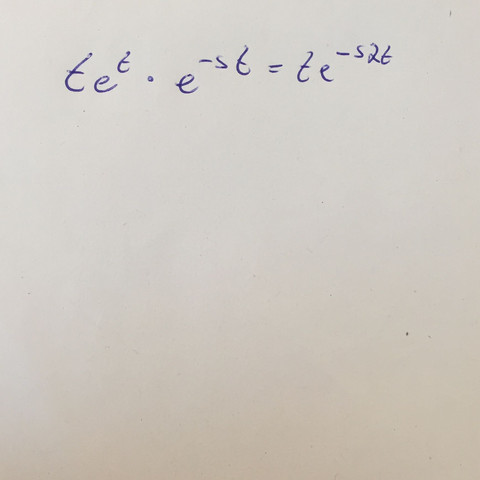 te^t · e^{-st} = te^{-s2t}